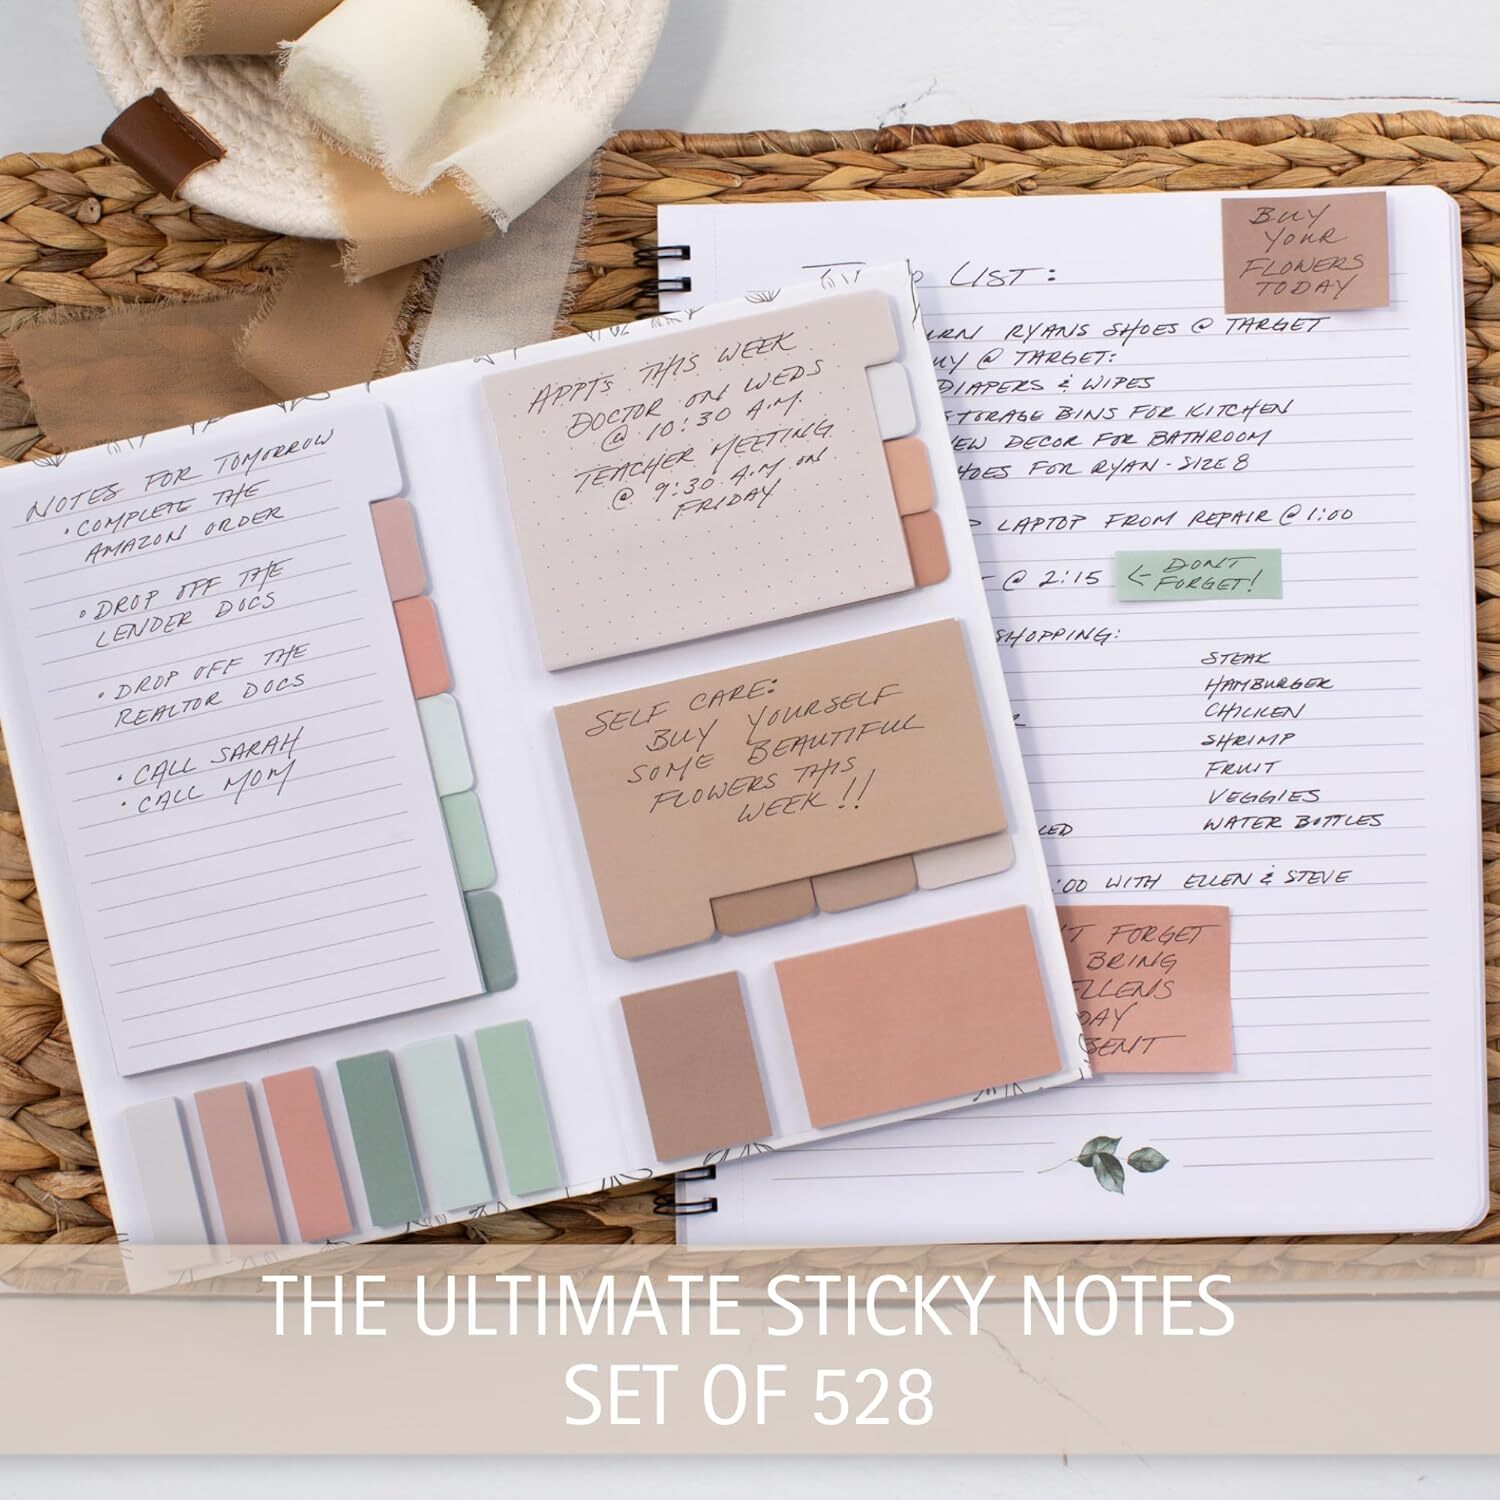 NOTES FOR TOMORROW
• COMPLETE THE
AMAZON ORDER
• DROP OFF THE
LENDER DOCS
• DROP OFF THE
REALTOR DOCS
• CALL SARAH
• CALL MOM
APPTS THIS WEEK
DOCTOR ON WEDS
@ 10:30 A.M.
TEACHER MEETING
@ 9:30 A.M ON
FRIDAY
SELF CARE:
BUY YOURSELF
SOME BEAUTIFUL
FLOWERS THIS
WEEK!!
BUY
YOUR
FLOWERS
TODAY
LIST:
RYANS SHOES @ TARGET
@ TARGET:
DIAPERS & WIPES
STORAGE BINS FOR KITCHEN
DECOR FOR BATHROOM
FOR RYAN - SIZE 8
LAPTOP FROM REPAIR @ 1:00
@ 2:15
← DON'T
FORGET!
SHOPPING:
STEAK
HAMBURGER
CHICKEN
SHRIMP
FRUIT
VEGGIES
WATER BOTTLES
:00 WITH ELLEN & STEVE
FORGET
BRING
ELLENS
THE ULTIMATE STICKY NOTES
SET OF 528